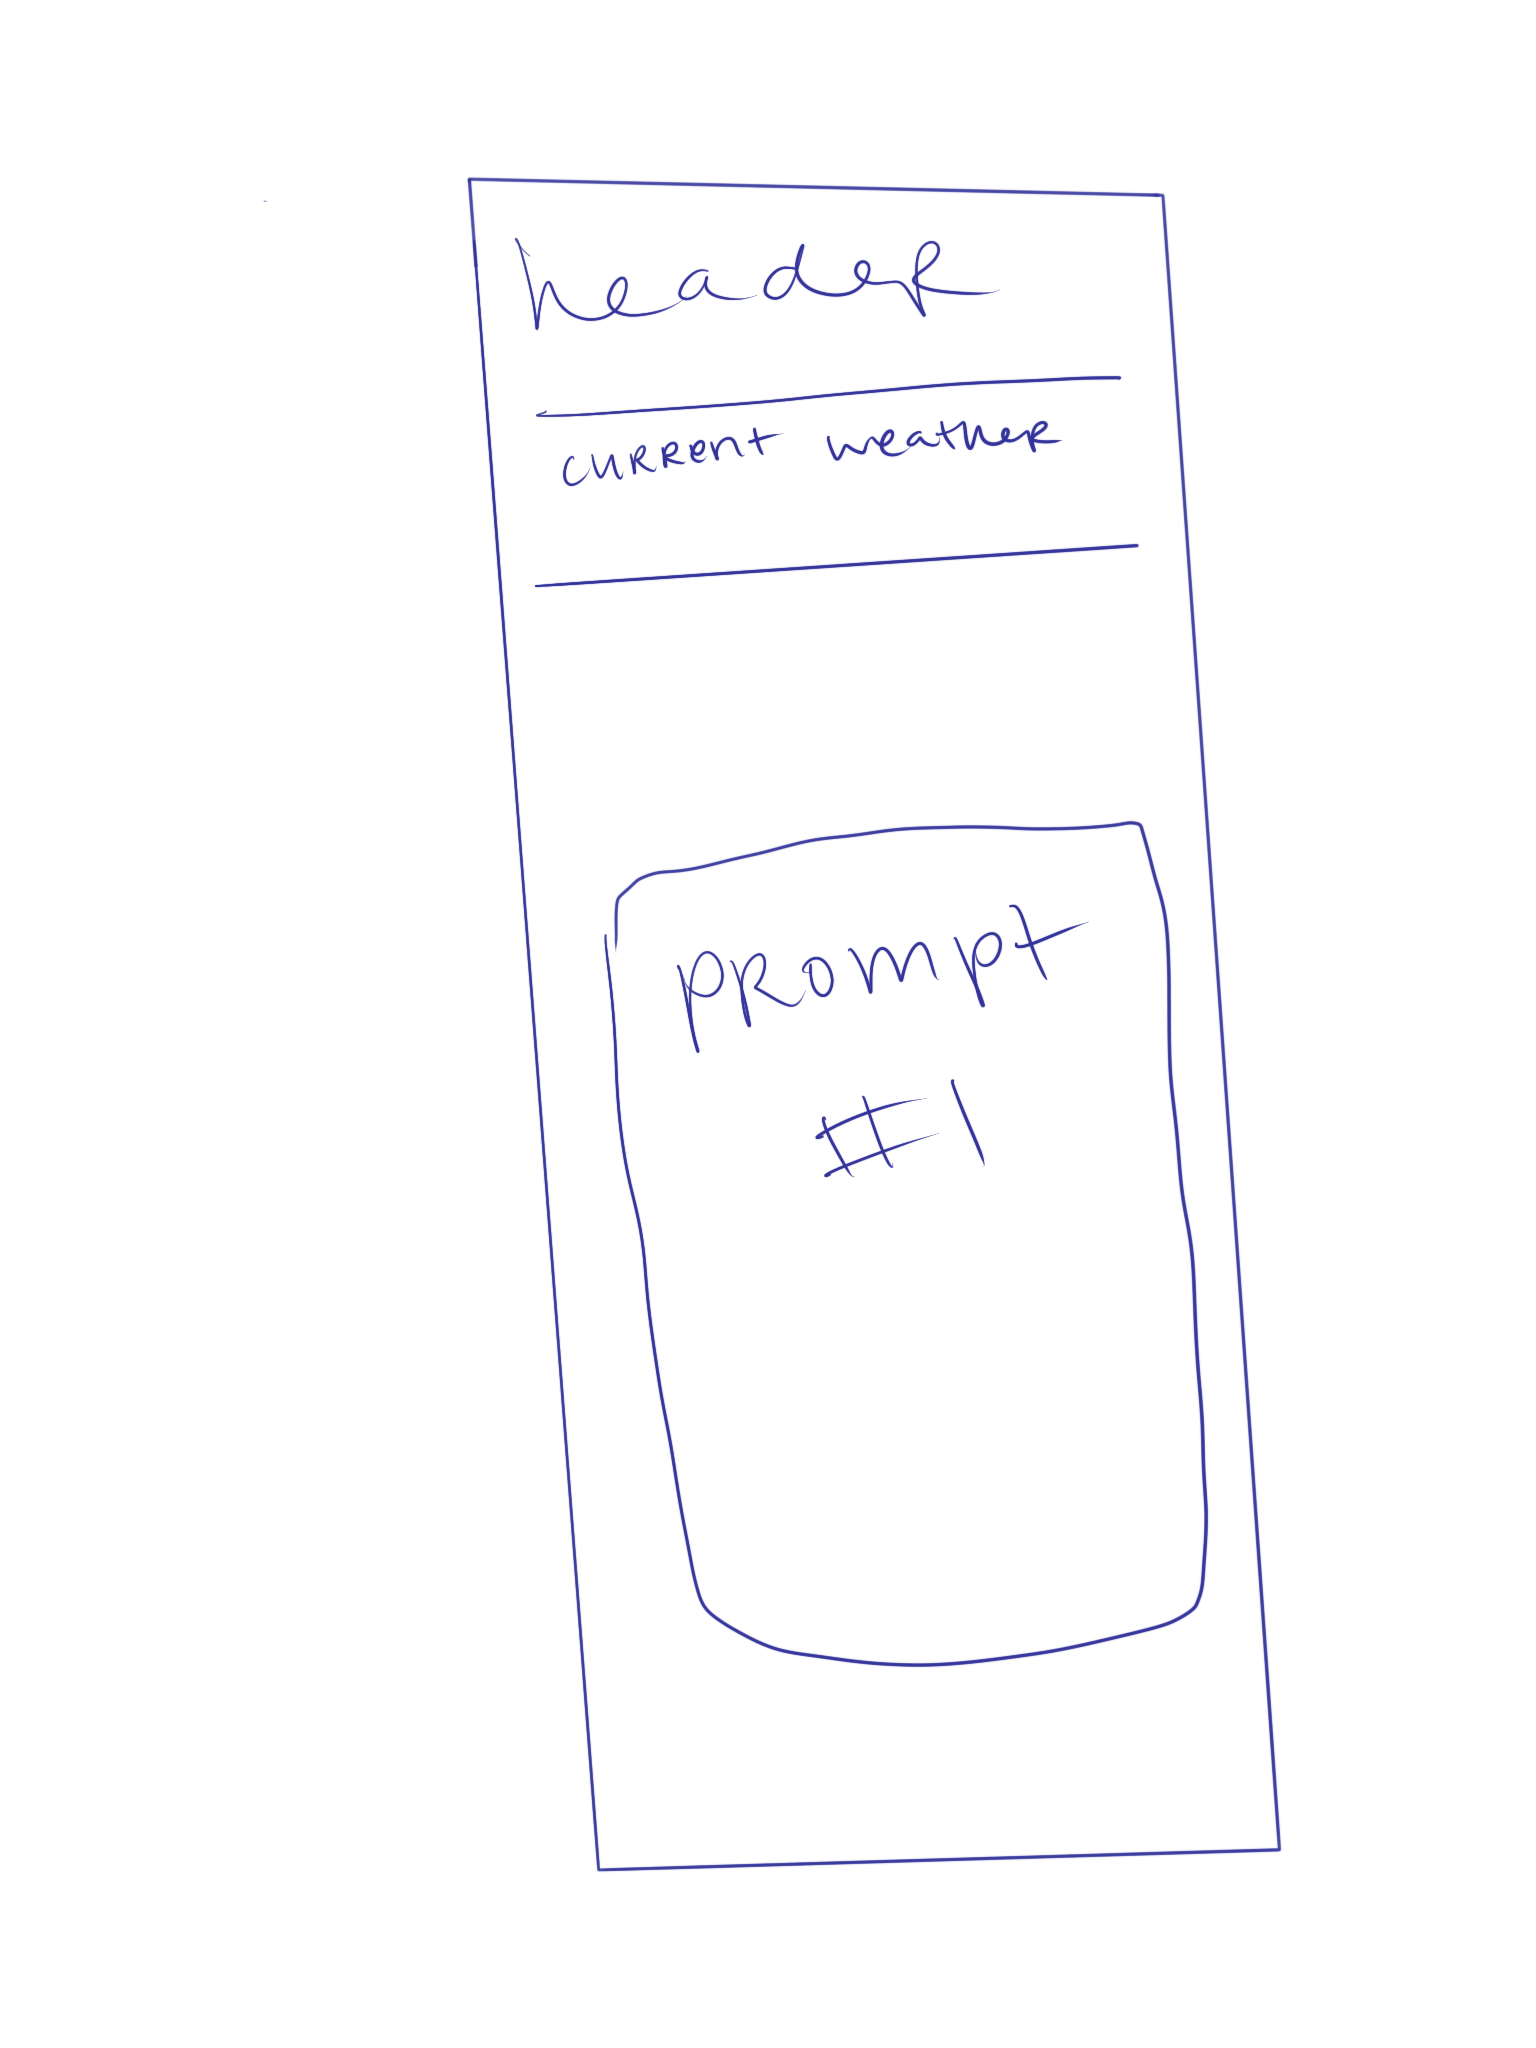 header
current weather
prompt
#1